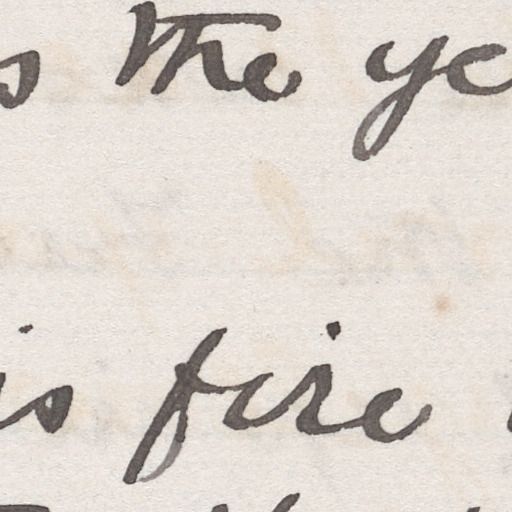 s the ye
is fire